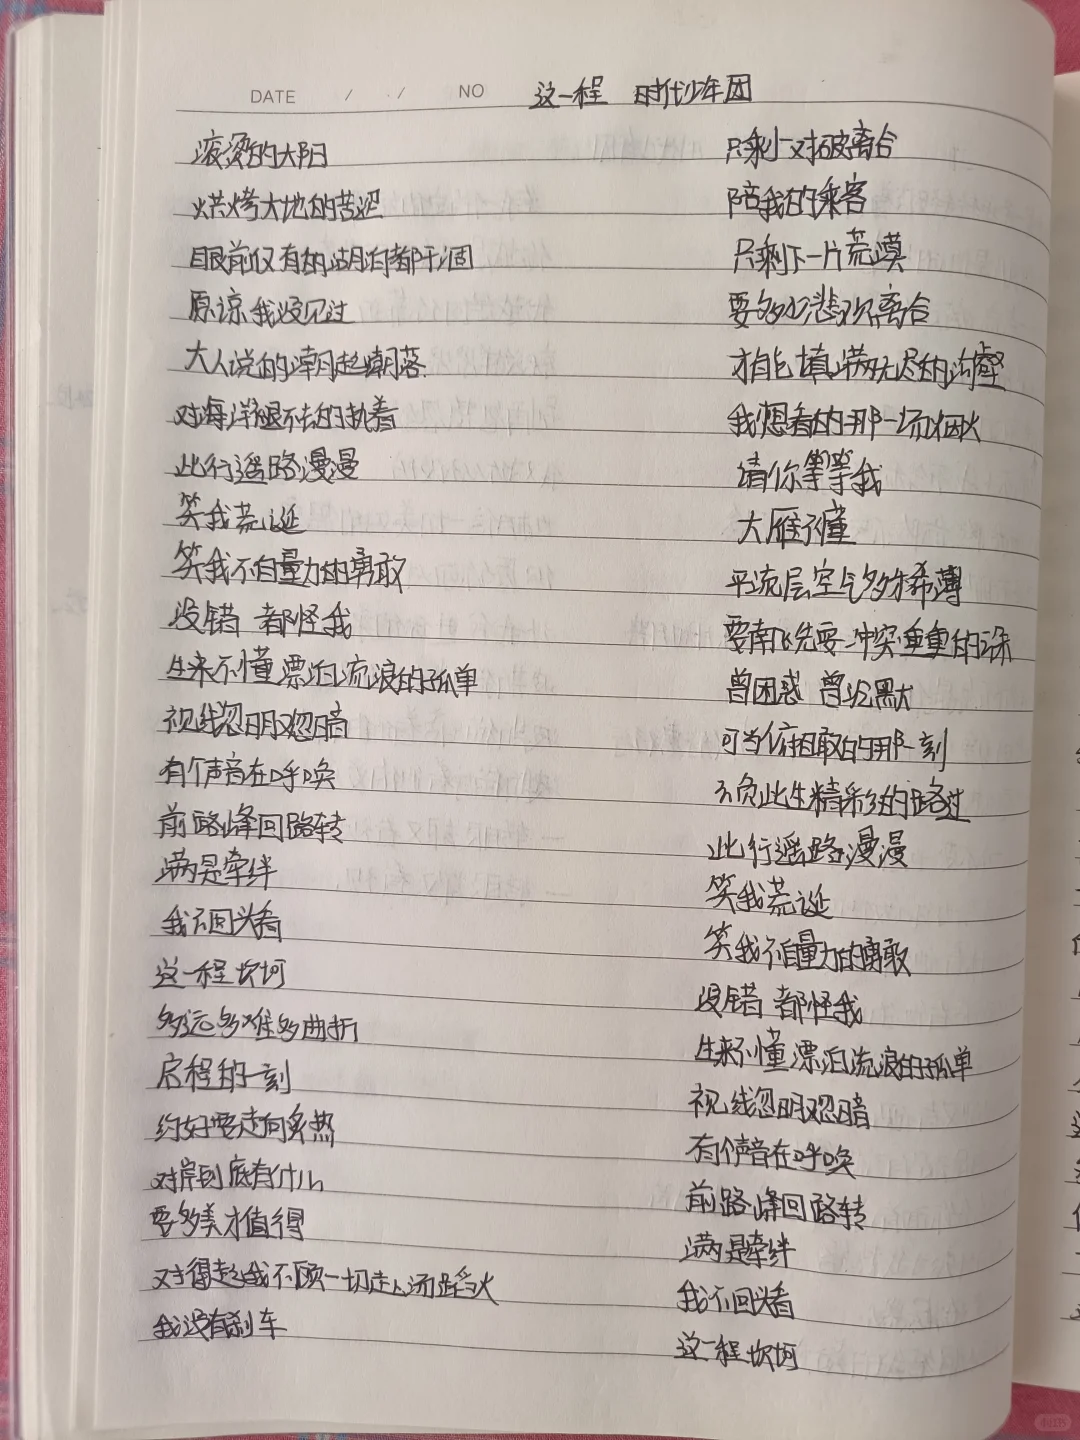 DATE / / NO 这一程 时代少年团
滚烫的太阳
烘烤大地的苦涩
眼前仅有的湖泊都干涸
原谅我没见过
大人说的潮起潮落
对海洋褪不去的执着
此行遥路漫漫
笑我荒诞
笑我不自量力的勇敢
没错 都怪我
生来不懂漂泊流浪的孤单
视线忽明忽暗
有个声音在呼唤
前路峰回路转
满是牵绊
我不回头看
这一程坎坷
多远多难多曲折
启程的一刻
约好要走向炙热
对岸到底有什么
要多美才值得
对得起我不顾一切走入汤蹈火
我没有刹车
只剩一对破离合
陪我的乘客
只剩下一片荒漠
要多少悲欢离合
才能填满无尽的沟壑
我想看的那一场烟火
请你等等我
大雁不懂
平流层空气多稀薄
要南飞先要冲突重重的
曾困惑 曾沉默
可当你抬敢的那一刻
不负此生精彩的路过
此行遥路漫漫
笑我荒诞
笑我不自量力的勇敢
没错 都怪我
生来不懂漂泊流浪的孤单
视线忽明忽暗
有个声音在呼唤
前路峰回路转
满是牵绊
我不回头看
这一程坎坷